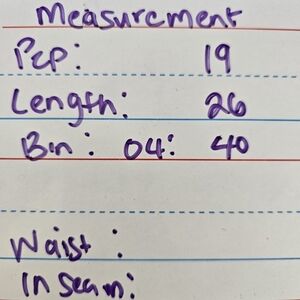 Measurement
Pcp: 19
Length: 26
Bin: 04: 40
Waist:
Inseam: